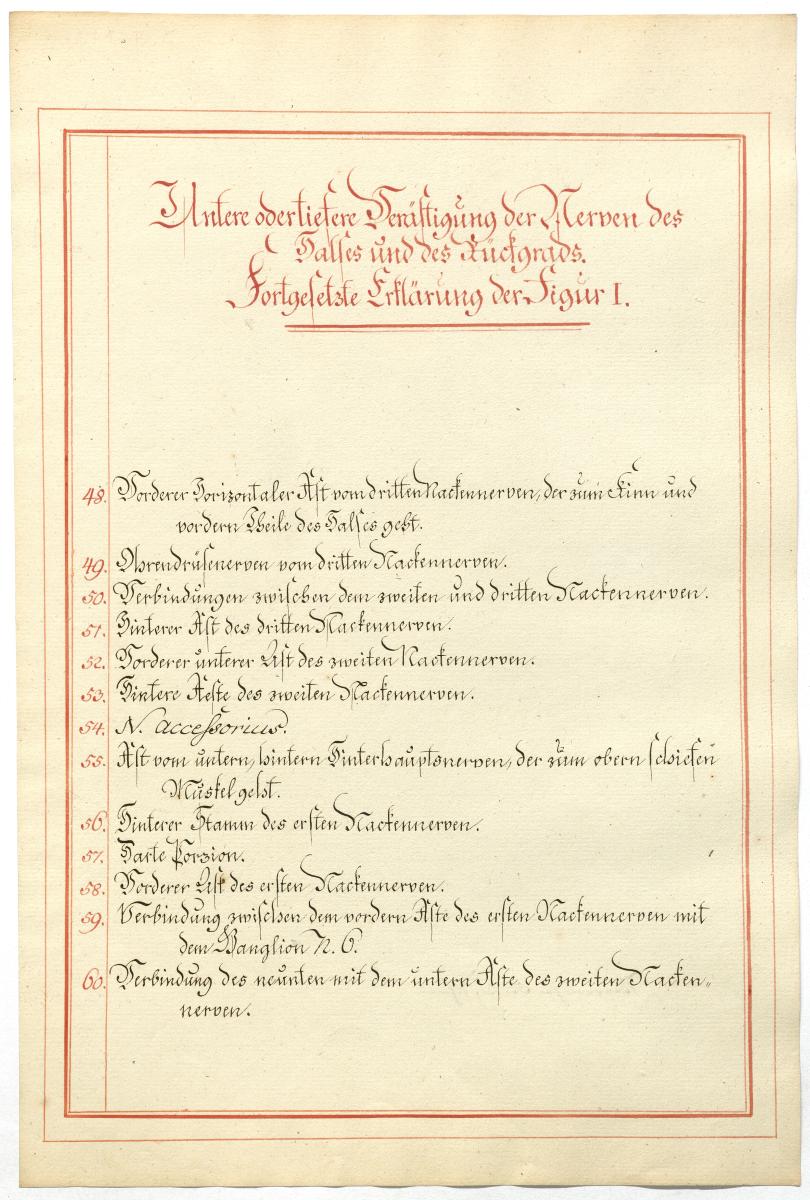 Untere oder tiefere Verästigung der Nerven des
Halses und des Rückgrads.
Fortgesetzte Erklärung der Figur I.
48. Vorderer horizontaler Ast vom dritten Nackennerven, der zum Kinn und
vordern Theile des Halses geht.
49. Ohrendrüsenerven vom dritten Nackennerven.
50. Verbindungen zwischen dem zweiten und dritten Nackennerven.
51. Hinterer Ast des dritten Nackennerven.
52. Vorderer unterer Ast des zweiten Nackennerven.
53. Hintere Aeste des zweiten Nackennerven.
54. N. accessorius.
55. Ast vom untern, hintern Hinterhauptsnerven, der zum obern schiefen
Muskel geht.
56. Hinterer Stamm des ersten Nackennerven.
57. Harte Porzion.
58. Vorderer Ast des ersten Nackennerven.
59. Verbindung zwischen dem vordern Aste des ersten Nackennerven mit
dem Ganglion N. 6.
60. Verbindung des neunten mit dem untern Aste des zweiten Nacken„
nerven.